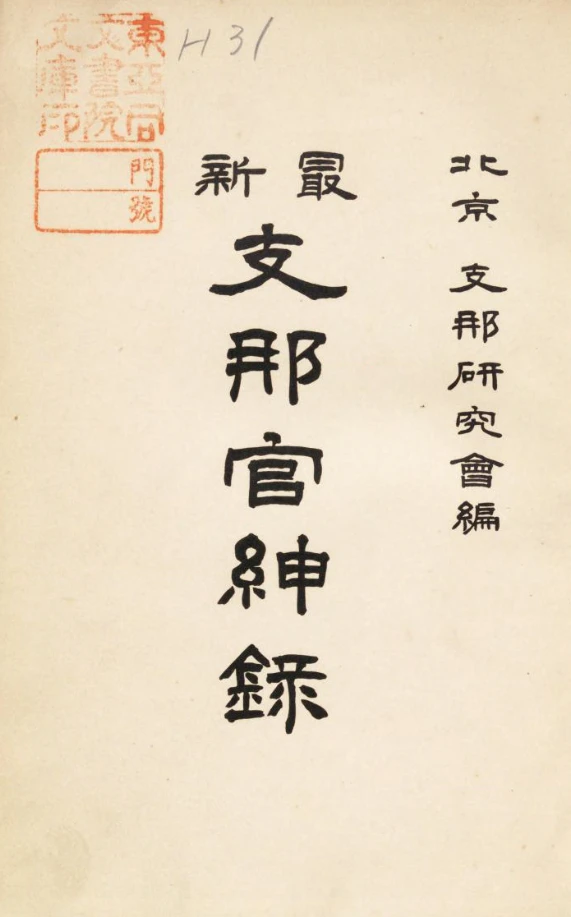 北京 支那研究會編
最新
支那官紳錄
H31
東亞同
文書院
文庫印
門
號